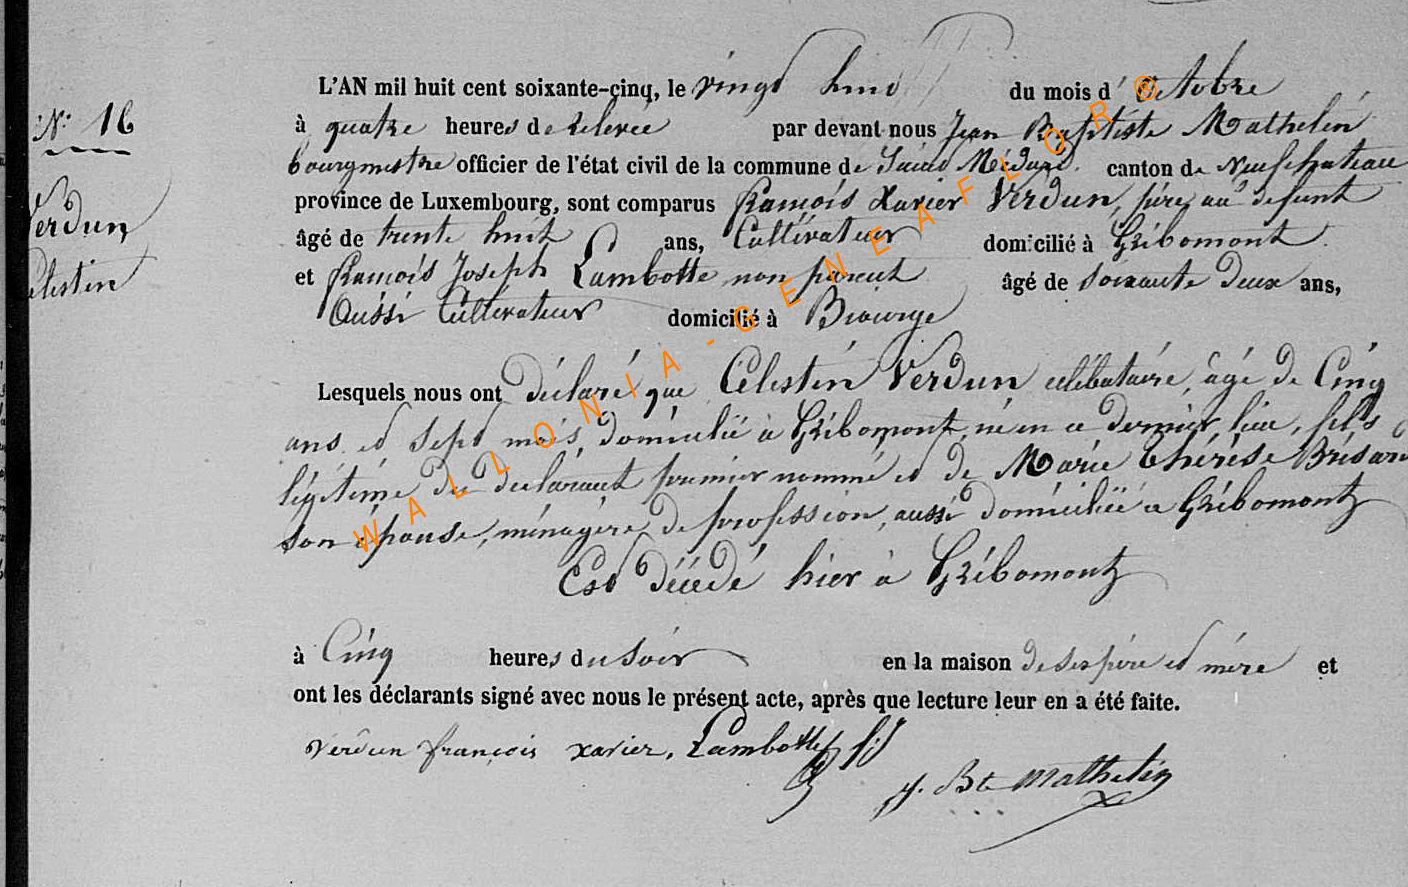 L'AN mil huit cent soixante-cinq, le vingt huit du mois d'Octobre
N° 16
à quatre heures de relevée par devant nous Jean Baptiste Mathelin
bourgmestre officier de l'état civil de la commune de Saint Médard canton de Neufchateau
province de Luxembourg, sont comparus François Xavier Verdun, père au défunt
Verdun
âgé de trente huit ans, Cultivateur domicilié à Gribomont
Célestin
et François Joseph Lambotte non parent âgé de soixante deux ans,
Aussi Cultivateur domicilié à
Lesquels nous ont déclaré que Célestin Verdun célibataire, âgé de Cinq
ans et sept mois, domicilié à Gribomont, né en ce dernier lieu, fils
légitime du déclarant premier nommé et de Marie Thérèse Brisard
son épouse, ménagère de profession, aussi domiciliée à Gribomont
Est décédé hier à Gribomont
à Cinq heures du soir en la maison de ses père et mère et
ont les déclarants signé avec nous le présent acte, après que lecture leur en a été faite.
Verdun françois xavier. Lambotte fs J
J. Bte Mathelin
WALLONIA-GENEAFLOR®